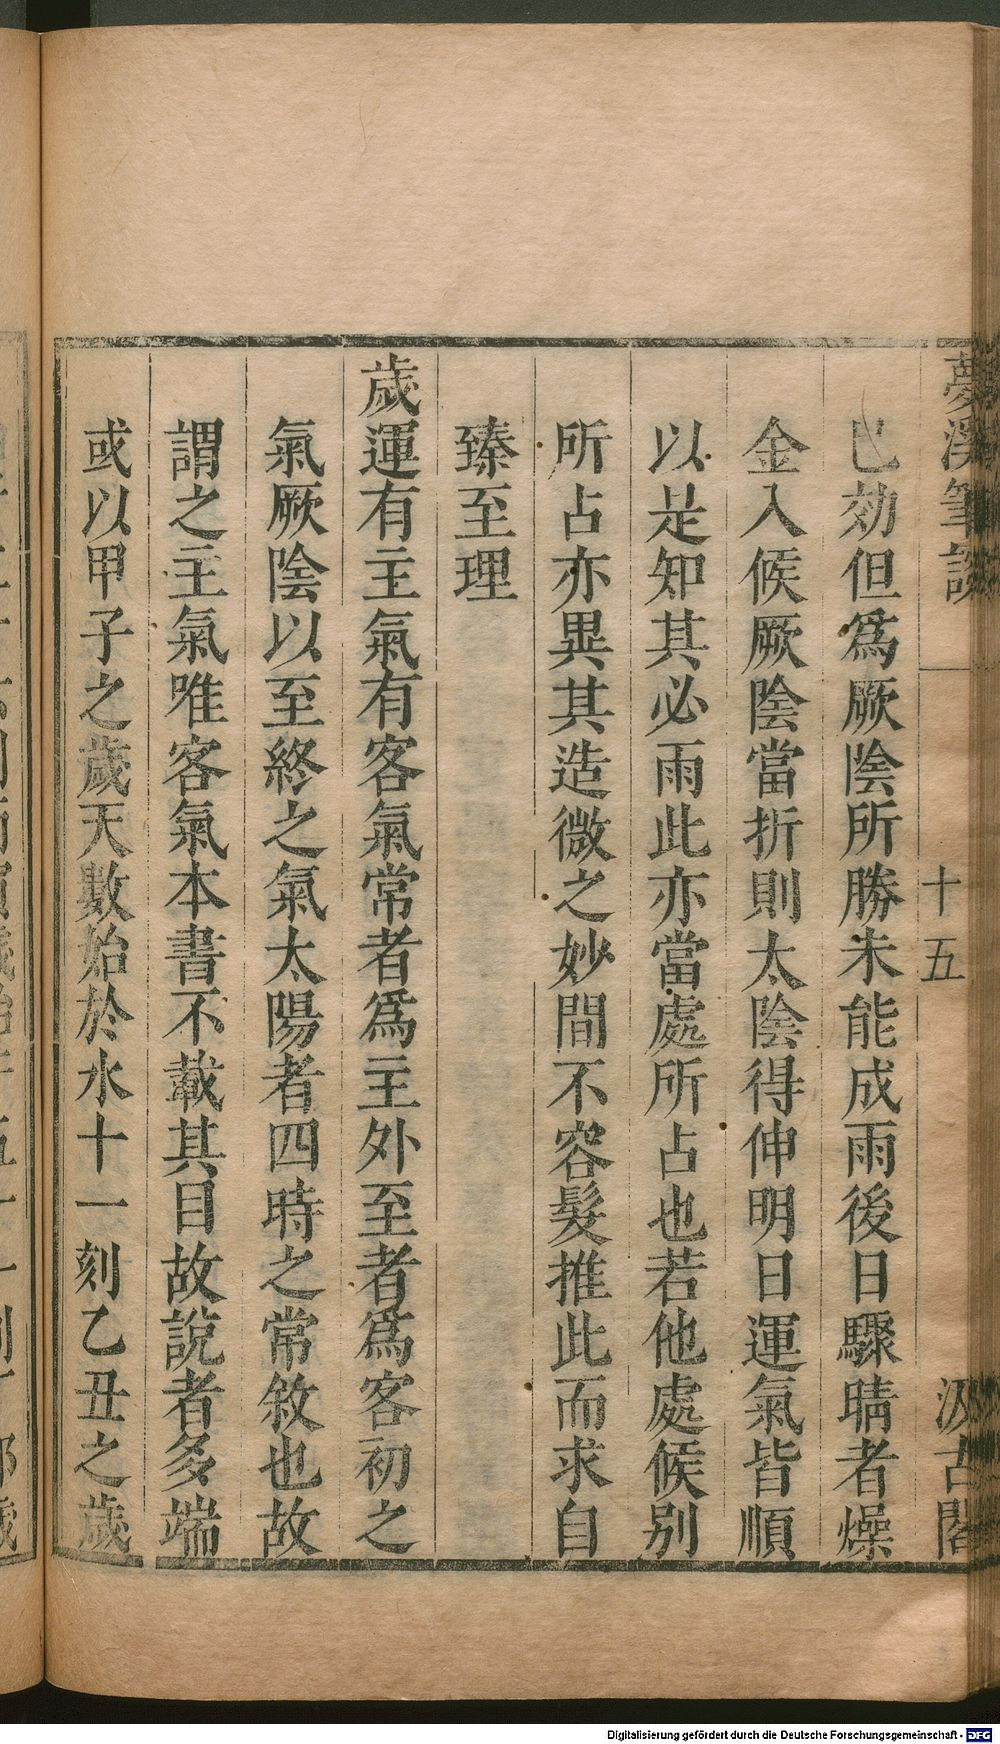 夢溪筆談
十五
汲古閣
已効但為厥陰所勝未能成雨後日驟晴者燥
金入候厥陰當折則太陰得伸明日運氣皆順
以是知其必雨此亦當處所占也若他處候別
所占亦異其造微之妙間不容髮推此而求自
臻至理
歲運有主氣有客氣常者為主外至者為客初之
氣厥陰以至終之氣太陽者四時之常敘也故
謂之主氣唯客氣本書不載其目故說者多端
或以甲子之歲天數始於水十一刻乙丑之歲
Digitalisierung gefördert durch die Deutsche Forschungsgemeinschaft - DFG